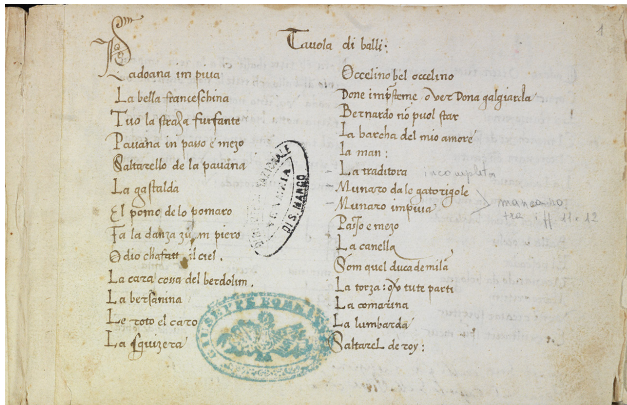 1
Tavola di balli:
Padoana in piva
La bella franceschina
Tuo la straza furfante
Pavana in passo e mezo
Saltarello de la pavana
La gastalda
El pomo de lo pomaro
Fa la danza zu m piero
O dio il ciel.
La cara cossa del berdolin.
La bersanina
Le roto el caro
La sguizera
Occelino bel occelino
Done over Dona galgiarda
Bernardo nō puol star
La barcha del mio amore
La man:
La traditora incompleta
Munaro da lo gatorigole
Munaro in piva
11. 12
Passo e mezo
La canella
Som quel duca de milā
La torza: tuti parti
La comarina
La lumbarda
Saltarel de roy:
DI S. MARCO